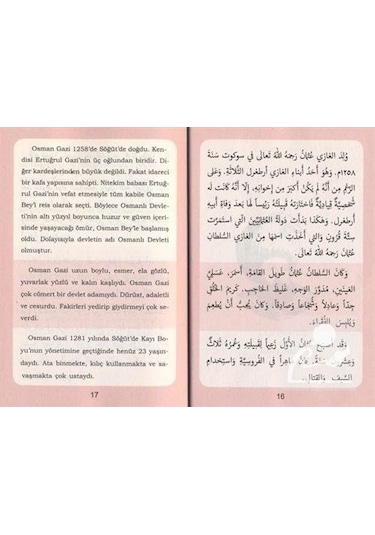 Osman Gazi 1258'de Söğüt'de doğdu. Ken-
disi Ertuğrul Gazi'nin üç oğlundan biridir. Di-
ğer kardeşlerinden büyük değildi. Fakat idareci
bir kafa yapısına sahipti. Nitekim babası Ertuğ-
rul Gazi'nin vefat etmesiyle tüm kabile Osman
Bey'i reis olarak seçti. Böylece Osmanlı Devle-
ti'nin altı yüzyıl boyunca huzur ve güven içeri-
sinde yaşayacağı ömür, Osman Bey'le başlamış
oldu. Dolayısıyla devletin adı Osmanlı Devleti
olmuştur.
Osman Gazi uzun boylu, esmer, ela gözlü,
yuvarlak yüzlü ve kalın kaşlıydı. Osman Gazi
çok cömert bir devlet adamıydı. Dürüst, adaletli
ve cesurdu. Fakirleri yedirip giydirmeyi çok se-
verdi.
Osman Gazi 1281 yılında Söğüt'de Kayı Bo-
yu'nun yönetimine geçtiğinde henüz 23 yaşın-
daydı. Ata binmekte, kılıç kullanmakta ve sa-
vaşmakta çok ustaydı.
17
وُلِدَ الغَازِي عُثْمَانُ رَحِمَهُ اللهُ تَعَالَى فِي سوكوت سَنَةَ
١٢٥٨م. وَهُوَ أَحَدُ أَبْنَاءِ الغَازِي أرطغرل الثَّلَاثَةِ. وَعَلَى
الرَّغْمِ مِنْ أَنَّهُ لَمْ يَكُنْ أَكْبَرَ مِنْ إِخْوَانِهِ، إِلَّا أَنَّهُ كَانَتْ لَهُ
شَخْصِيَّةٌ قِيَادِيَّةٌ فَاخْتَارَتْهُ قَبِيلَتُهُ رَئِيسًا لَهَا بَعْدَ وَفَاةِ أَبِيهِ
أرطغرل. وَهَكَذَا بَدَأَتْ دَوْلَةُ العُثْمَانِيِّينَ الَّتِي اسْتَمَرَّتْ
سِتَّةَ قُرُونٍ وَالَّتِي أَخَذَتِ اسْمَهَا مِنَ الغَازِي السُّلْطَانِ
عُثْمَانَ رَحِمَهُ اللهُ تَعَالَى.
وَكَانَ السُّلْطَانُ عُثْمَانُ طَوِيلَ القَامَةِ، أَسْمَرَ، عَسَلِيَّ
العَيْنَيْنِ، مُدَوَّرَ الوَجْهِ، غَلِيظَ الحَاجِبِ. كَرِيمَ الخُلُقِ
جِدًّا وَعَادِلًا وَشُجَاعًا وَصَادِقًا. وَكَانَ يُحِبُّ أَنْ يُطْعِمَ
وَيُلْبِسَ الفُقَرَاءَ.
وَقَدْ أَصْبَحَ الأَوَّلُ زَعِيمًا لِقَبِيلَتِهِ وَعُمُرُهُ ثَلَاثٌ
فِي الفُرُوسِيَّةِ وَاسْتِخْدَامِ
السَّيْفِ وَالقِتَالِ.
16